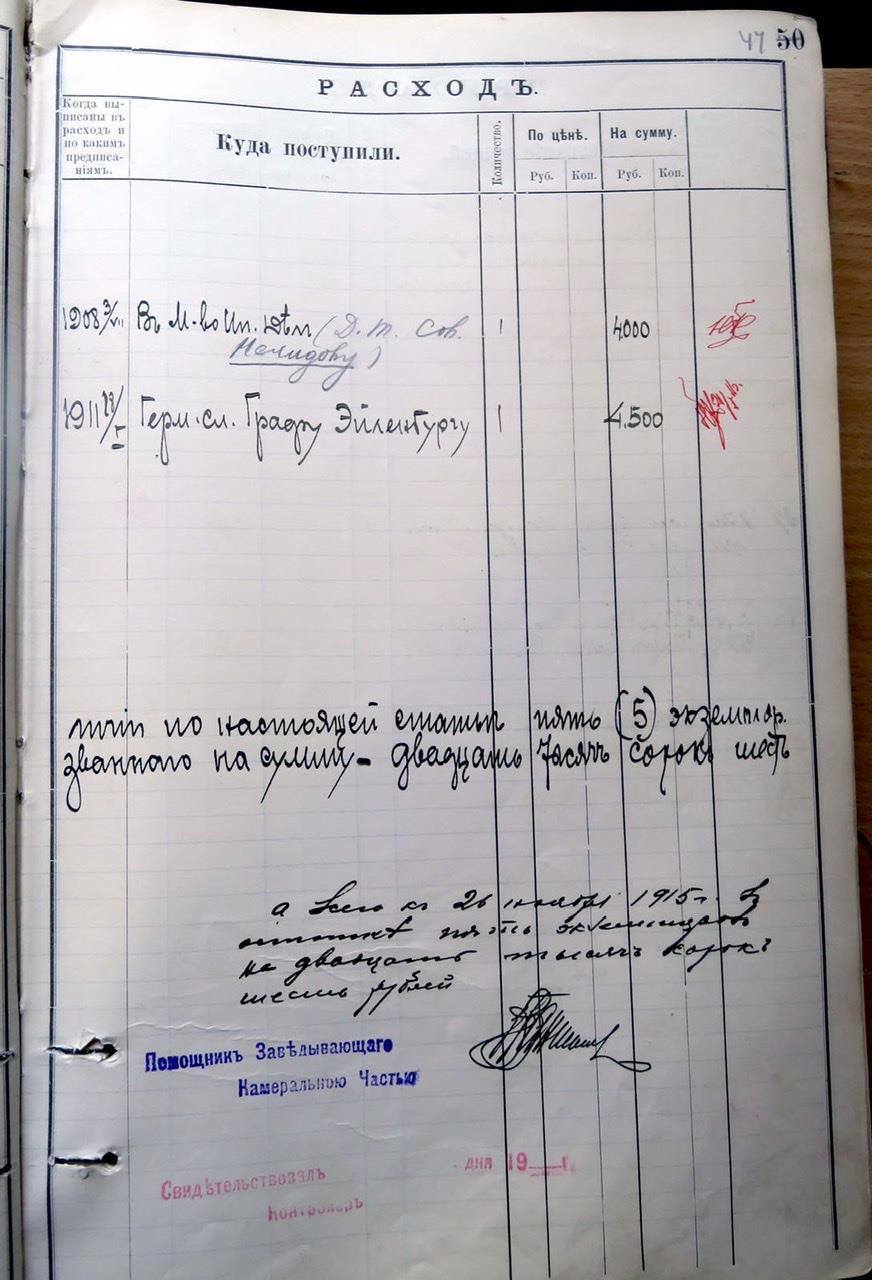 47 50
РАСХОДЪ.
Когда вы-
писаны въ
расходъ и
по какимъ
предписа-
ніямъ.
Куда поступили.
Количество.
По цѣнѣ.
На сумму.
Руб. Коп. Руб. Коп.
1908 3/VII Въ М-во Ин. Дѣл (Д. Т. Сов. 1 4000
Нелидову)
1911 23/I Герм. сл. Графу Эйленбургу 1 4.500
по настоящей статьи пять (5) экземпляр.
званнаго на сумму - двадцать тысячъ сорокъ шесть
а всего къ 26 ноября 1915 г. въ
остаткѣ пять экземпляровъ
на двадцать тысячъ сорокъ
шесть рублей
Помощникъ Завѣдывающаго
Камеральною Частью
дня 19 г.
Свидѣтельствовалъ
Контролеръ